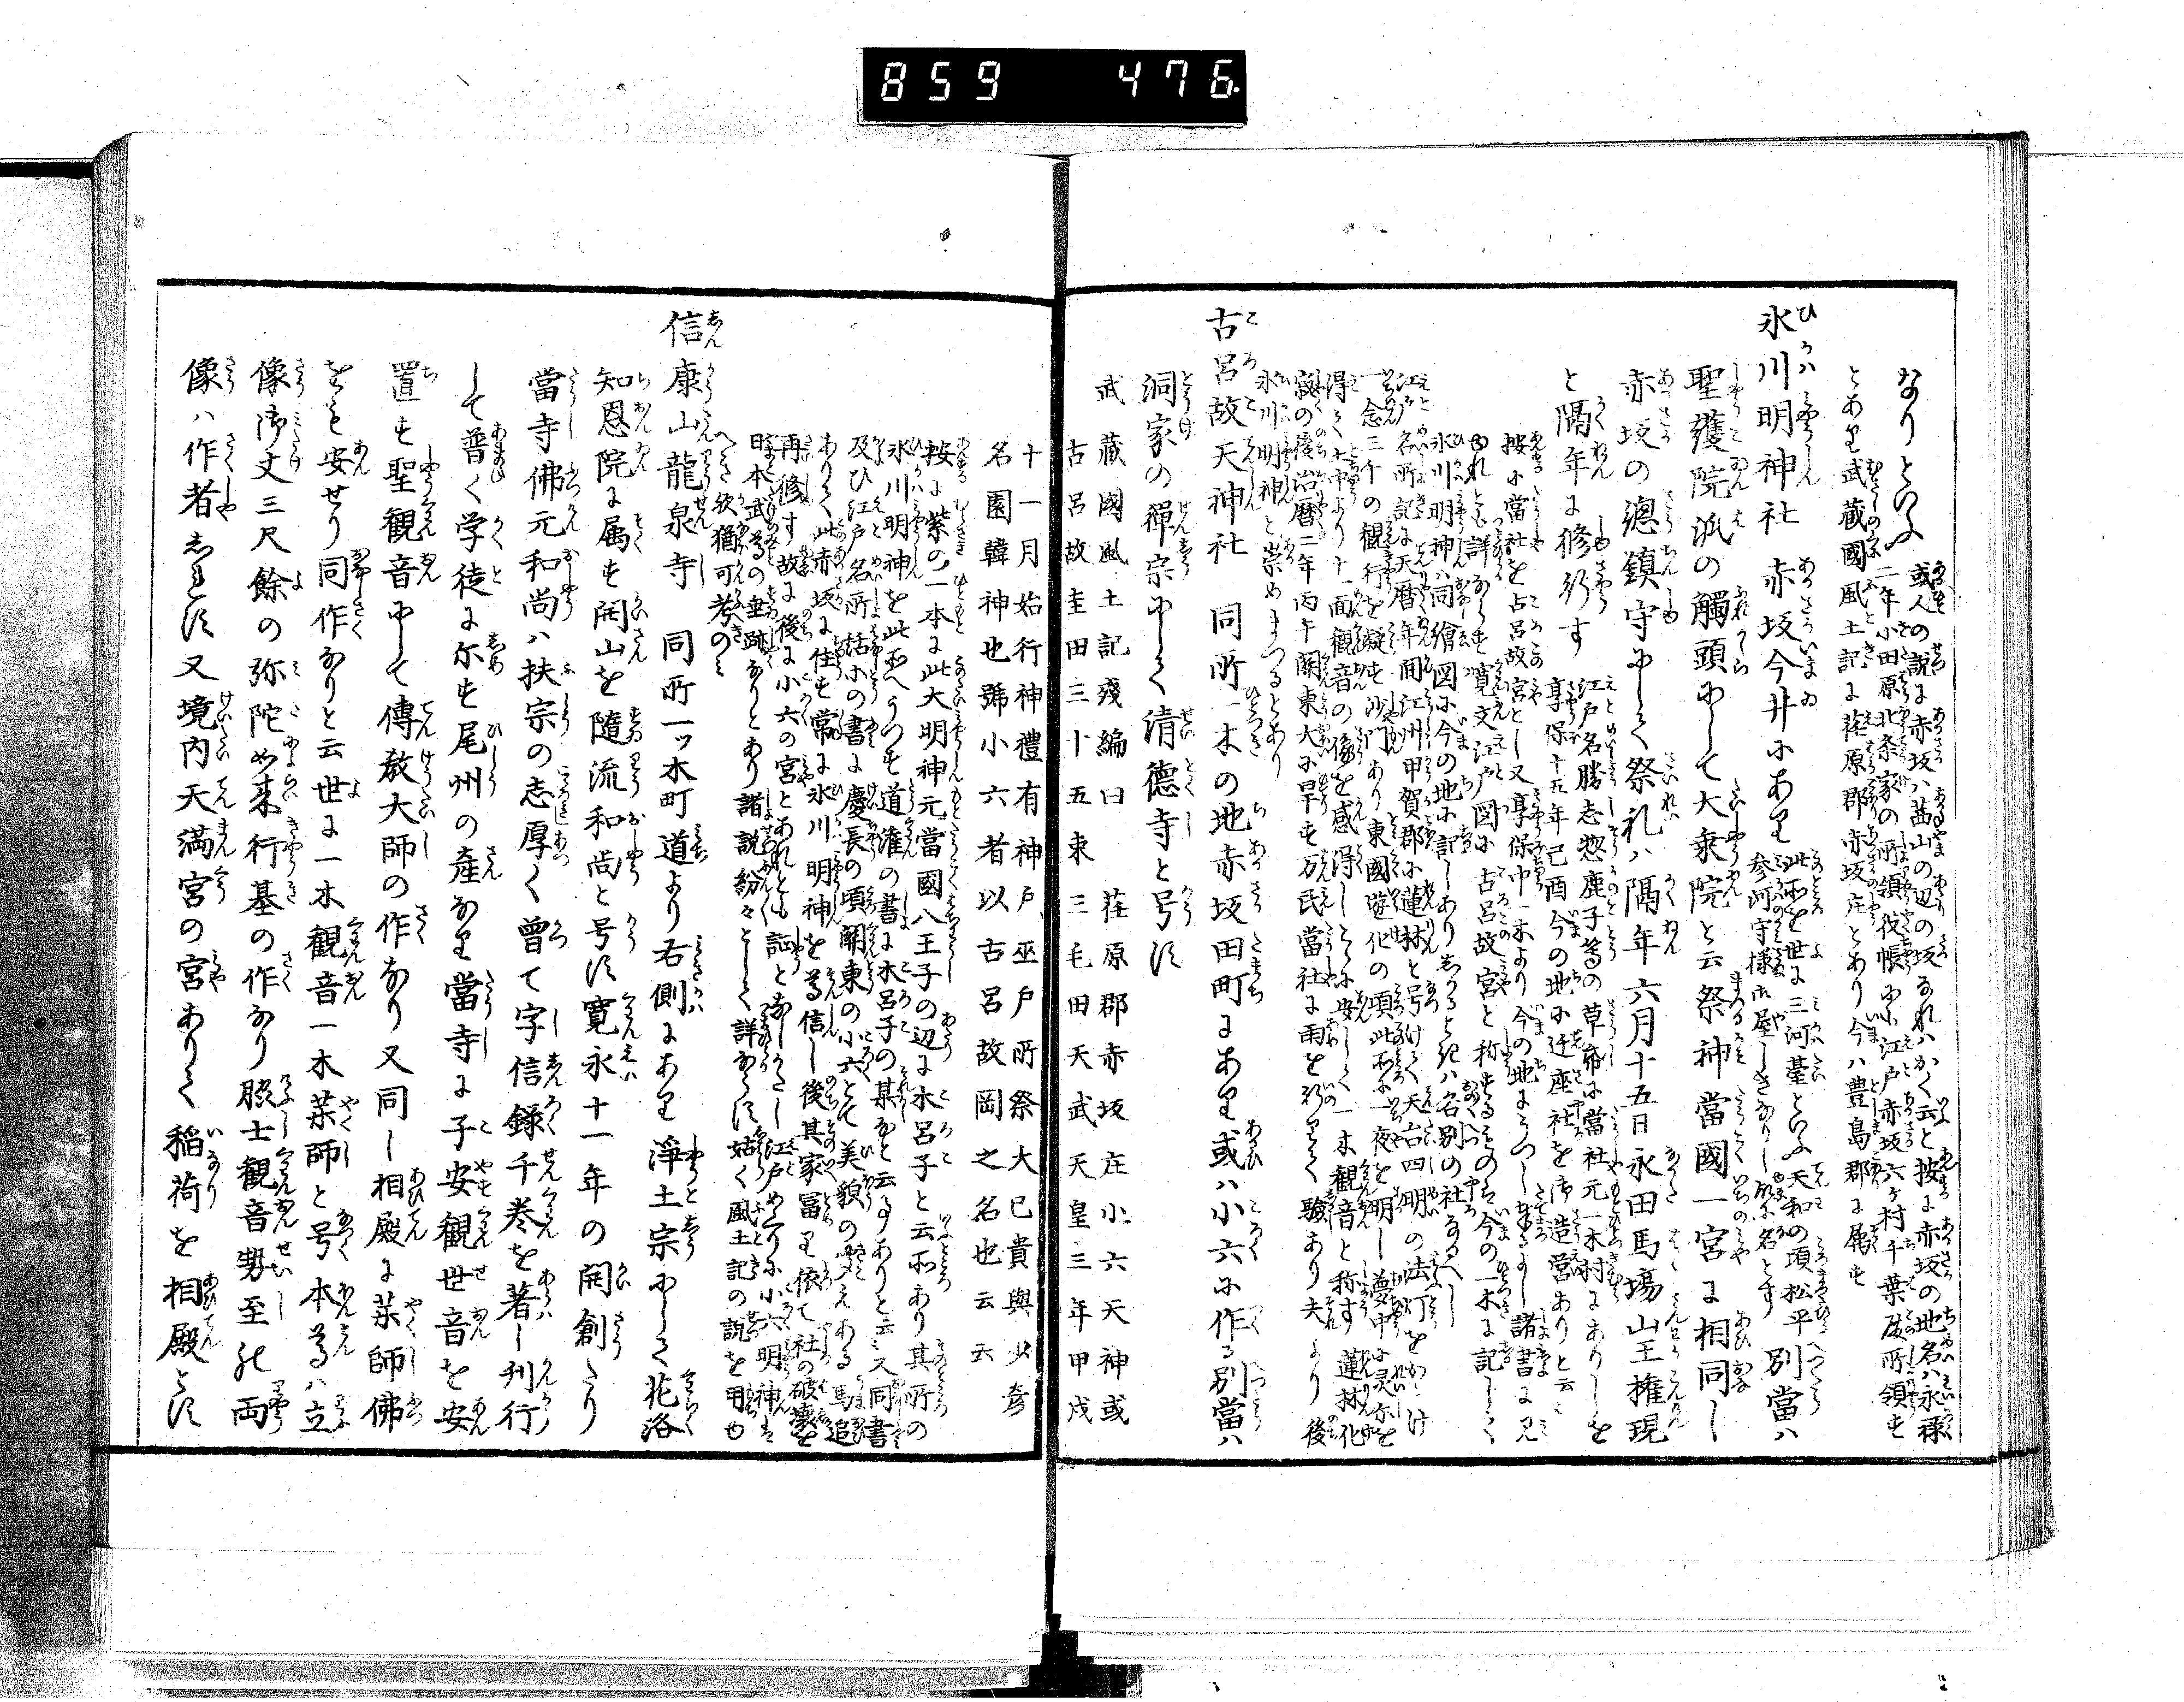 859 476.
なりといふ 或人の説に赤坂ハ茜山の辺の坂なれハかく云と按に赤坂の地名ハ永禄
二年小田原北条家の所領役帳に江戸赤坂六ヶ村千葉殿所領す
とあり武蔵國風土記に荏原郡赤坂庄とあり今ハ豊島郡に属す
氷川明神社 赤坂今井にあり 此所を世に三河臺といふ天和の頃松平
参河守様御屋しきありし故に名とす 別當ハ
聖護院派の觸頭にして大乗院と云祭神當國一宮に相同し
赤坂の總鎮守にして祭礼ハ隔年六月十五日永田馬塲山王権現
と隔年に修行す 江戸名勝志惣鹿子等の草帋に當社元一木村にありしを
享保十五年己酉今の地に迁座社を御造営ありと云々
按に當社を古呂故宮とし又享保中一木より今の地にうつし奉るよし諸書に見
ゆれとも詳ならす寛文江戸図に古呂故宮と称するものは今の一木に記して
氷川明神ハ同繪図に今の地に記しありしかるときハ名別の社なるへし
江戸名所記に天暦年間江州甲賀郡に蓮林と号けて天台四明の法灯をかゝけ
一念三千の観行を凝す沙門あり東國遊化の頃此所に一夜を明し夢中に灵尓を
得て土中より十一面観音の像を感得しとゝに安して一木観音と称す蓮林化
寂の後治暦二年丙午関東大に旱す万民當社に雨を祈りて驗あり夫より後
氷川明神と崇めまつるとあり
古呂故天神社 同所一木の地赤坂田町にあり或ハ小六に作る別當ハ
洞家の禅宗にして清徳寺と号す
武藏國風土記殘編曰 荏原郡赤坂庄小六天神或
古呂故圭田三十五束三毛田天武天皇三年甲戌
十一月始行神禮有神戸巫戸所祭大巳貴與少彦
名園韓神也號小六者以古呂故岡之名也云云
按に紫の一本に此大明神元當國八王子の辺に木呂子と云所あり其所の
氷川明神を此所へうつす道潅の書に木呂子の某なと云る事ありと云々又同書
及ひ江戸名所話小の書に慶長の頃関東の小六とて美貌の聞えある馬追
ありて此赤坂に住す常に氷川明神を尊信し後其家富り依て社の破壊を
再修す故に後に小六の宮とあれとも証となしかたし江戸めくりに小六明神は
日本武尊の垂跡なりとあり諸説紛々として詳ならす姑く風土記の説を用ゆ
へき欤猶可考のミ
信康山龍泉寺 同所一ッ木町道より右側にあり淨土宗にして花洛
知恩院に属す開山を隨流和尚と号す寛永十一年の開創たり
當寺佛元和尚ハ扶宗の志厚く曽て字信録千巻を著し刋行
して普く学徒に尓す尾州の産なり當寺に子安観世音を安
置す聖観音にして傳教大師の作なり又同し相殿に薬師佛
をも安せり同作なりと云世に一木観音一木薬師と号本尊ハ立
像御丈三尺餘の弥陀如来行基の作なり脇士観音勢至の両
像ハ作者しれす又境内天満宮の宮ありて稲荷を相殿とす